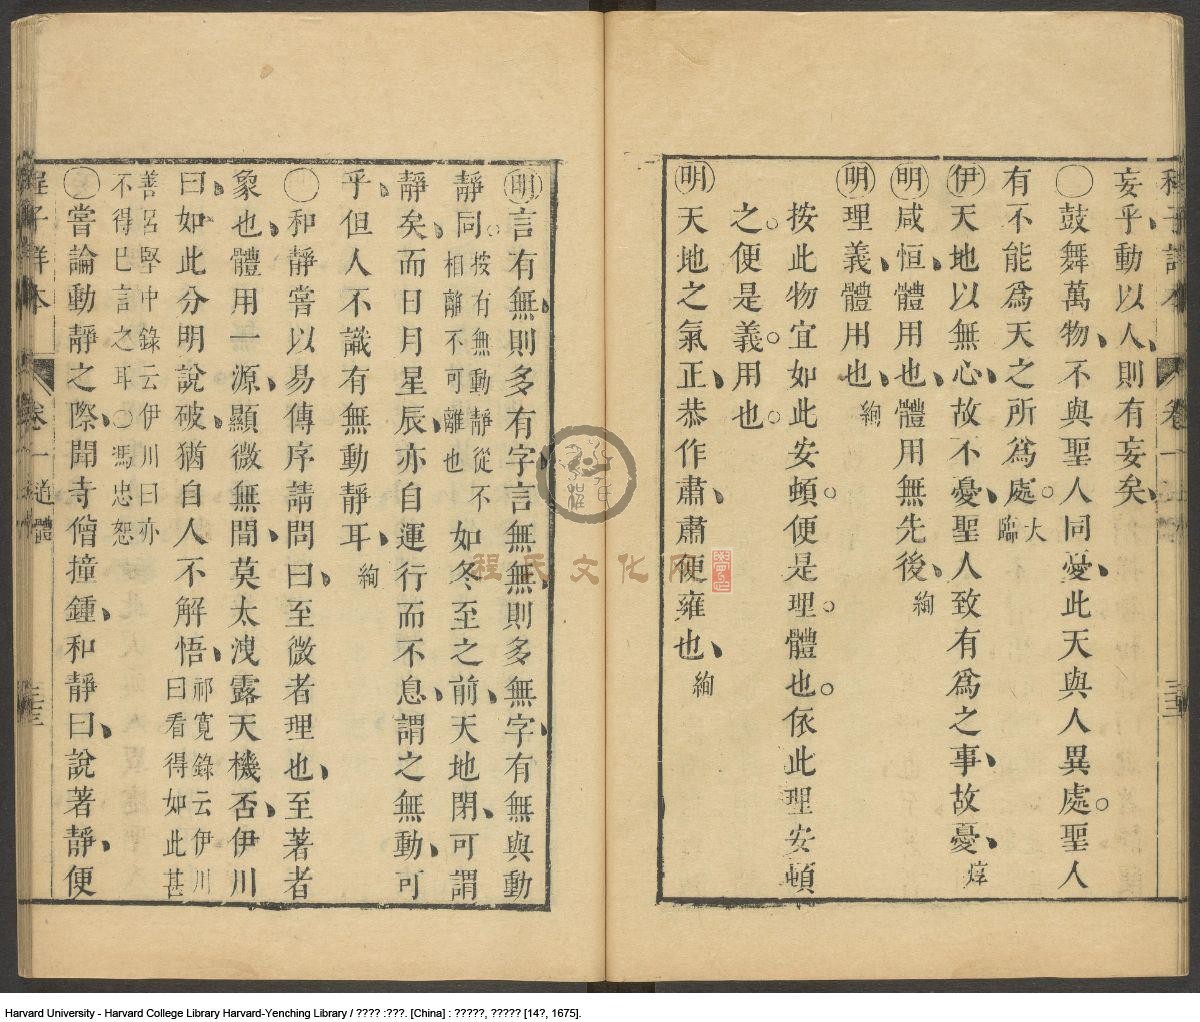 妄乎動以人則有妄矣
〇鼓舞萬物不與聖人同憂此天與人異處聖人
有不能爲天之所爲處大臨
伊天地以無心故不憂聖人致有爲之事故憂焞
明咸恒體用也體用無先後絢
明理義體用也絢
按此物宜如此安頓便是理體也依此理安頓
之便是義用也
明天地之氣正恭作肅肅便雍也絢
明言有無則多有字言無無則多無字有無與動
靜同按有無動靜從不相離不可離也如冬至之前天地閉可謂
靜矣而日月星辰亦自運行而不息謂之無動可
乎但人不識有無動靜耳絢
〇和靜嘗以易傳序請問曰至微者理也至著者
象也體用一源顯微無間莫太洩露天機否伊川
曰如此分明說破猶自人不解悟祁寬錄云伊川曰看得如此甚
善呂堅中錄云伊川曰亦不得已言之耳〇馮忠恕
〇嘗論動靜之際聞寺僧撞鍾和靜曰說著靜便
卷一
道體
三三
程氏文化网
Harvard University - Harvard College Library Harvard-Yenching Library / ???? :???. [China] : ?????, ????? [14?, 1675].